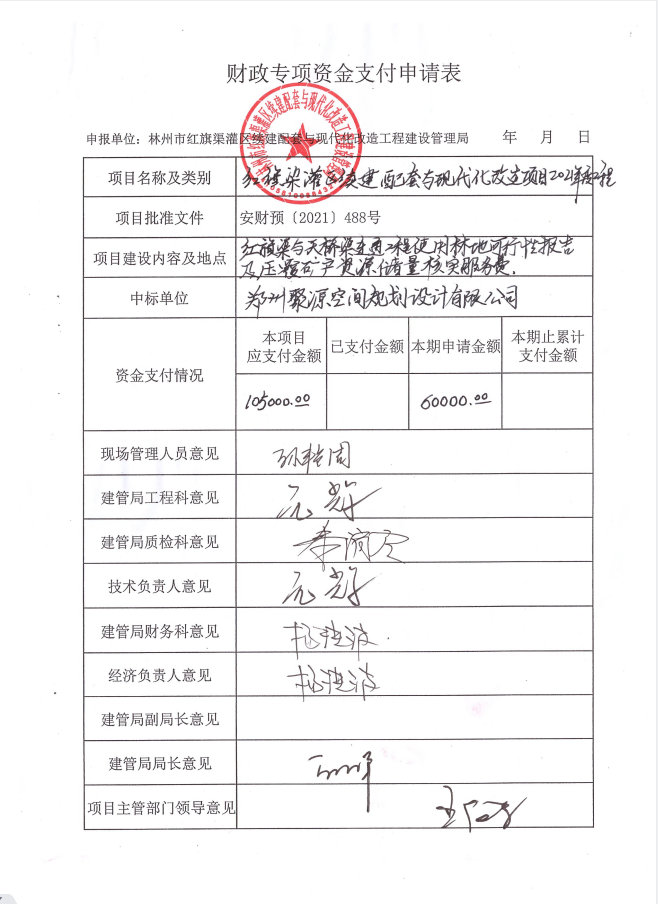 财政专项资金支付申请表
申报单位：林州市红旗渠灌区续建配套与现代化改造工程建设管理局 年 月 日
项目名称及类别 红旗渠灌区续建配套与现代化改造项目2021年度工程
项目批准文件 安财预〔2021〕488号
项目建设内容及地点 红旗渠与天桥渠连通工程使用林地可行性报告
及压覆矿产资源储量核实服务费.
中标单位 郑州聚源空间规划设计有限公司
资金支付情况
本项目
应支付金额
已支付金额
本期申请金额
本期止累计
支付金额
105000.00
60000.00
现场管理人员意见
建管局工程科意见 元辉
建管局质检科意见
技术负责人意见 元辉
建管局财务科意见
经济负责人意见
建管局副局长意见
建管局局长意见
项目主管部门领导意见